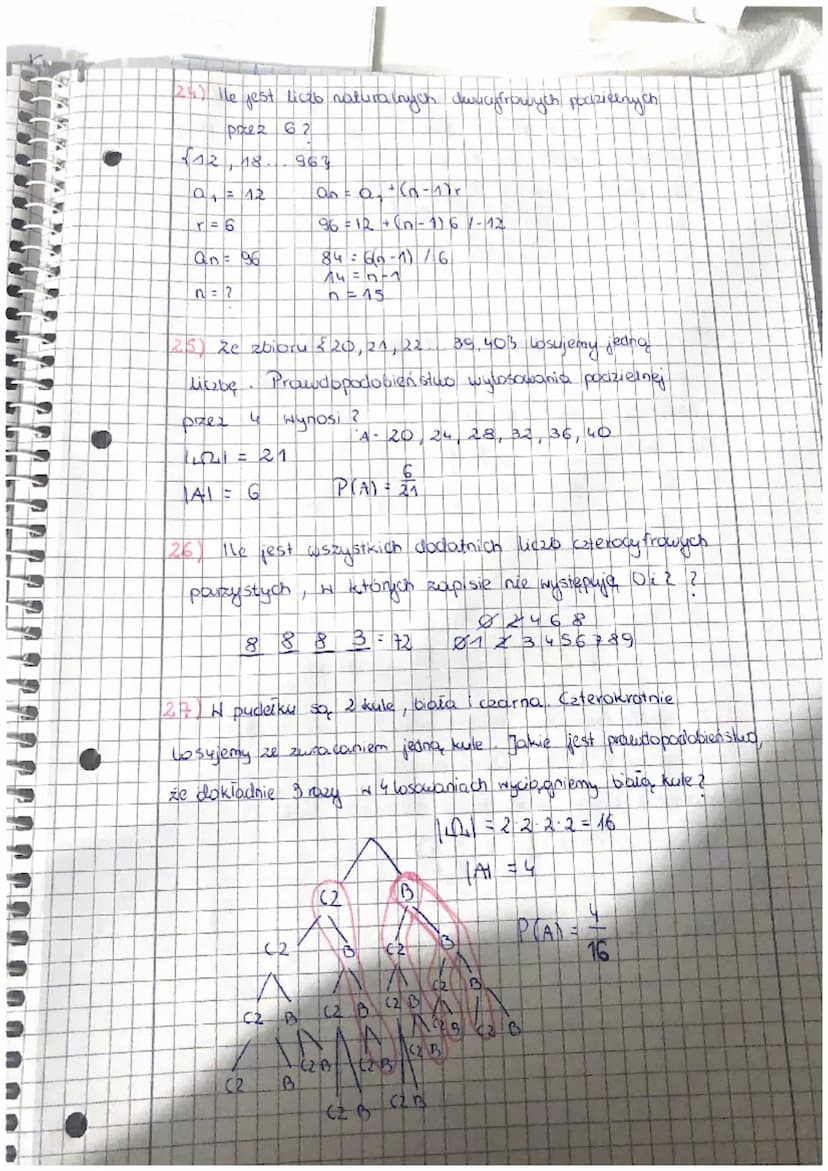 24) Ile jest liczb naturalnych dwucyfrowych podzielnych
przez 6?
{12, 18... 96}
a₁ = 12 an = a₁ + (n-1)r
r = 6 96 = 12 + (n-1)6 /-12
an = 96 84 = 6(n-1) /:6
14 = n-1
n = ? n = 15
25) Ze zbioru {20, 21, 22... 39, 40} losujemy jedną
liczbę. Prawdopodobieństwo wylosowania podzielnej
przez 4 wynosi?
A- 20, 24, 28, 32, 36, 40
|Ω| = 21
|A| = 6 P(A) = 6/21
26) Ile jest wszystkich dodatnich liczb czterocyfrowych
parzystych, w których zapisie nie występują 0 i 2?
0 2 4 6 8
8 8 8 3 = 72 0 1 2 3 4 5 6 7 8 9
27) W pudełku są 2 kule, biała i czarna. Czterokrotnie
losujemy ze zwracaniem jedną kule. Jakie jest prawdopodobieństwo,
że dokładnie 3 razy w 4 losowaniach wyciągniemy białą kule?
|Ω| = 2·2·2·2 = 16
|A| = 4
CZ B
P(A) = 4/16
CZ B CZ B
CZ B CZ B CZ B CZ B
CZ B CZ B
CZ B CZ B CZ B
CZ B
CZ B CZ B